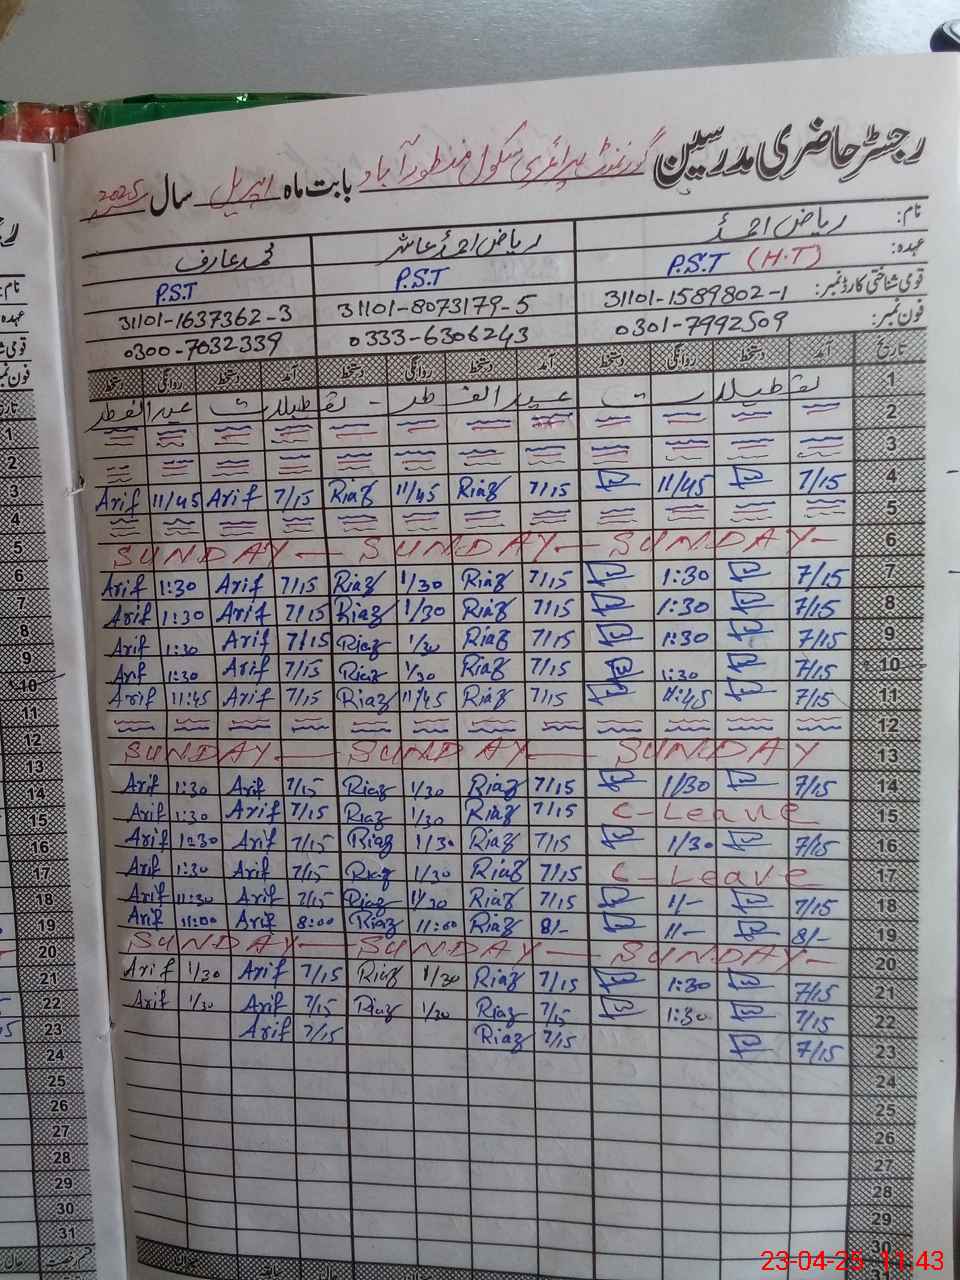 رجسٹر حاضری مدرسین گورنمنٹ پرائمری سکول منظور آباد بابت ماہ اپریل سال 2025
نام: ریاض احمد ریاض احمد عاشر محمد عارف
عہدہ: P.S.T (H.T) P.S.T P.S.T
قومی شناختی کارڈ نمبر: 31101-1589802-1 31101-8073179-5 31101-1637362-3
فون نمبر: 0301-7992509 0333-6306243 0300-7032339
تاریخ آمد دستخط روانگی دستخط آمد دستخط روانگی دستخط آمد دستخط روانگی دستخط
1 تعطیلات عید الفطر تعطیلات عید الفطر
2
3
4 7/15 11/45 7/15 Riaz 11/45 Riaz 7/15 Arif 11/45 Arif
5
6 SUNDAY — SUNDAY — SUNDAY -
7 7/15 1:30 7/15 Riaz 1/30 Riaz 7/15 Arif 1:30 Arif
8 7/15 1:30 7/15 Riaz 1/30 Riaz 7/15 Arif 1:30 Arif
9 7/15 1:30 7/15 Riaz 1/30 Riaz 7/15 Arif 1:30 Arif
10 7/15 1:30 7/15 Riaz 1/30 Riaz 7/15 Arif 1:30 Arif
11 7/15 11:45 7/15 Riaz 11/45 Riaz 7/15 Arif 11:45 Arif
12
13 SUNDAY — SUNDAY — SUNDAY
14 7/15 1/30 7/15 Riaz 1/30 Riaz 7/15 Arif 1:30 Arif
15 C-Leave 7/15 Riaz 1/30 Riaz 7/15 Arif 1:30 Arif
16 7/15 1/30 7/15 Riaz 1/30 Riaz 7/15 Arif 1:30 Arif
17 C-Leave 7/15 Riaz 1/30 Riaz 7/15 Arif 1:30 Arif
18 7/15 11/- 7/15 Riaz 11/30 Riaz 7/15 Arif 11:30 Arif
19 8/- 11/- 8/- Riaz 11:00 Riaz 8:00 Arif 11:00 Arif
20 SUNDAY — SUNDAY — SUNDAY -
21 7/15 1:30 7/15 Riaz 1/30 Riaz 7/15 Arif 1/30 Arif
22 7/15 1:30 7/15 Riaz 1/30 Riaz 7/15 Arif 1/30 Arif
23 7/15 7/15 Riaz 7/15 Arif
24
25
26
27
28
29
30
23-04-25 11:43